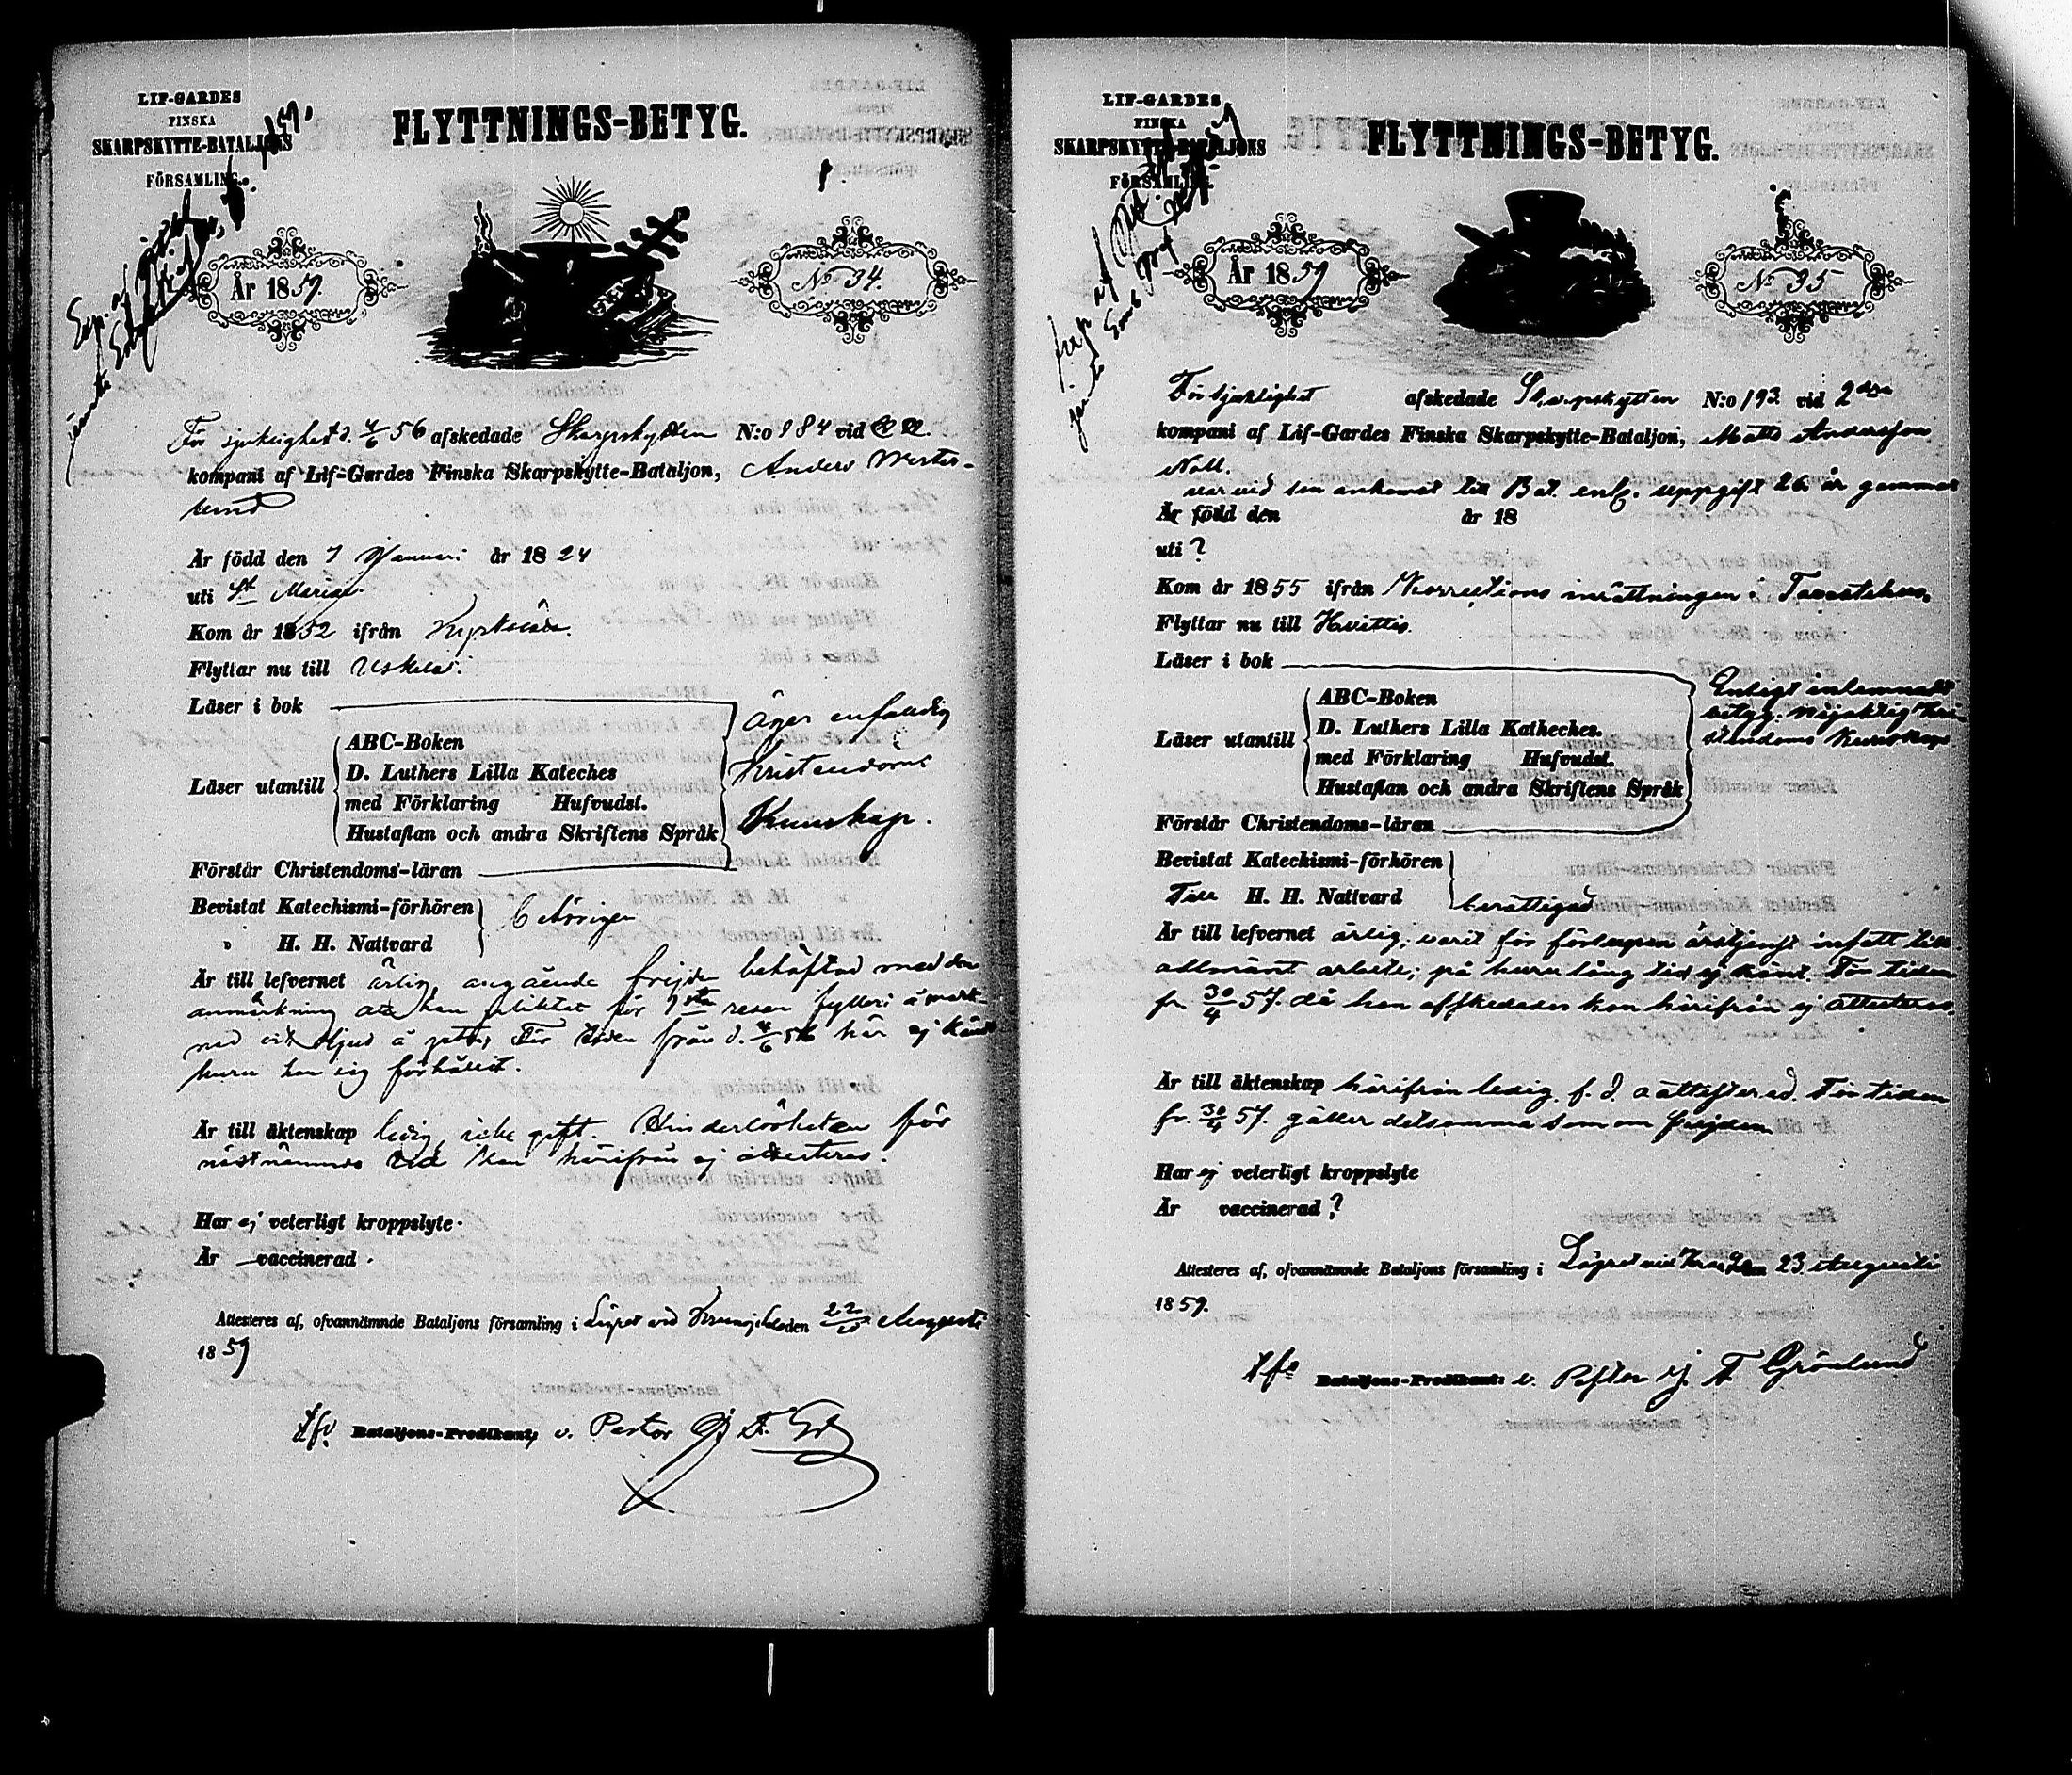 LIF-GARDES
FINSKA
SKARPSKYTTE-BATALJONS
FÖRSAMLING.
FLYTTNINGS-BETYG.
År 1859.
No 34.
För sjuklighet d. 4/6 56 afskedade Skarpskytten N:o 184 vid
kompani af Lif-Gardes Finska Skarpskytte-Bataljon, Anders Wester-
lund
Är född den 7 Januari år 1824
uti St Mariae.
Kom år 1852 ifrån
Flyttar nu till Uskela.
Läser i bok
Läser utantill
ABC-Boken
D. Luthers Lilla Kateches
med Förklaring Hufvudst.
Hustaflan och andra Skriftens Språk
äger enfaldig
Kristendoms
Kunskap.
Förstår Christendoms-läran
Bevistat Katechismi-förhören
" H. H. Nattvard
behörigen
Är till lefvernet ärlig, angående frejden behäftad med den
anmärkning att han pliktat för 1sta resan fylleri å mark-
nad och ljud å gatt, För tiden från d. 4/6 56 här ej känt
huru han sig förhållit.
Är till äktenskap ledig, icke gift. Hinderlösheten för
nästnämnde tid kan härifrån ej attesteras.
Har ej veterligt kroppslyte.
Är vaccinerad.
Attesteres af, ofvannämnde Bataljons församling i Lägret vid den 22 Augusti
1859
Bataljons-Predikant, v. Pastor
LIF-GARDES
FINSKA
SKARPSKYTTE-BATALJONS
FÖRSAMLING.
FLYTTNINGS-BETYG.
År 1859
No 35
För sjuklighet afskedade Skarpskytten N:o 193 vid 2dra
kompani af Lif-Gardes Finska Skarpskytte-Bataljon, Matts Andersson
Noll.
var vid sin ankomst till Bat. enl. uppgift 26 år gammal
Är född den år 18
uti ?
Kom år 1855 ifrån Korrections inrättningen i Tavastehus.
Flyttar nu till Hvittis.
Läser i bok
Läser utantill
ABC-Boken
D. Luthers Lilla Katheches.
med Förklaring Hufvudst.
Hustaflan och andra Skriftens Språk
Enligt inlemnadt
betyg. nöjaktig Kri-
stendoms Kunskap
Förstår Christendoms-läran
Bevistat Katechismi-förhören
Till H. H. Nattvard
berättigad
Är till lefvernet ärlig, varit för förlupen årstjenst insatt till
allmänt arbete; på huru lång tid ej känt. För tiden
fr. 30/4 57. då han afskedades kan härifrån ej attesteras.
Är till äktenskap härifrån ledig. För tiden
fr. 30/4 57. gäller detsamma som om frejden
Har ej veterligt kroppslyte
Är vaccinerad ?
Attesteres af, ofvannämnde Bataljons församling i Lägret vid den 23 Augusti
1859.
Bataljons-Predikant: v. Pastor G. F. Grönlund